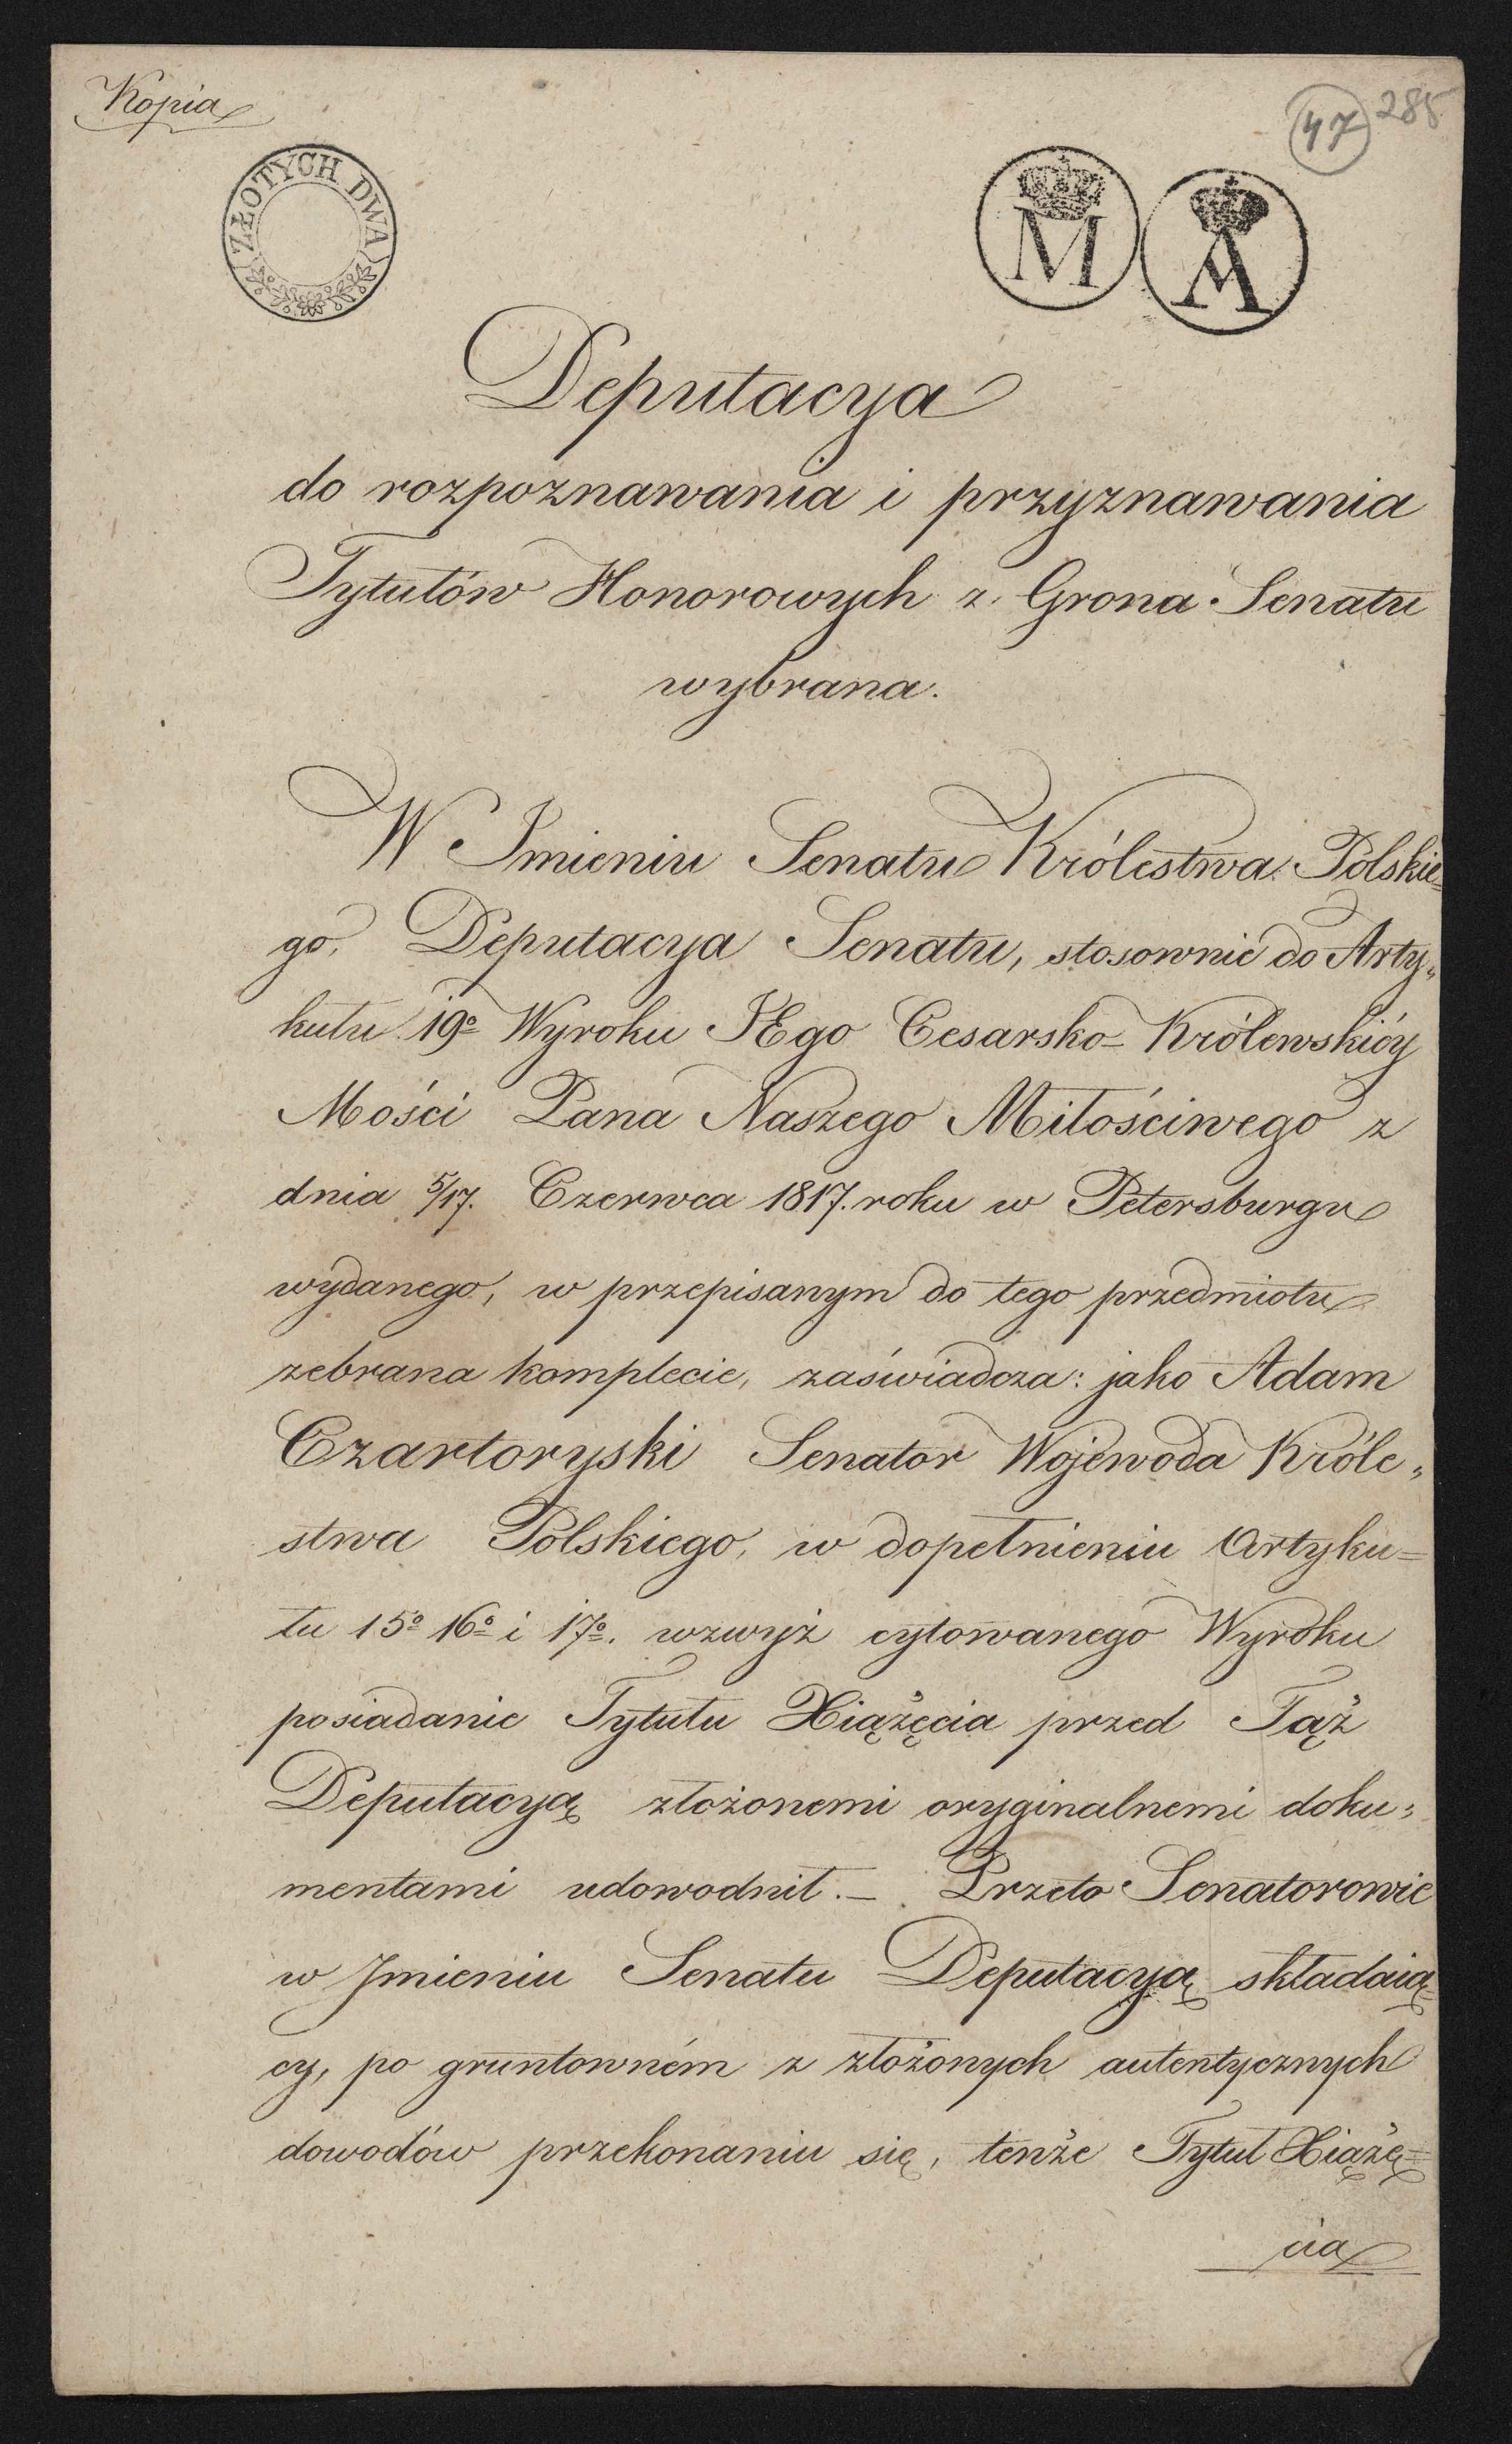 Kopia
47 285
ZŁOTYCH DWA
M A
Deputacya
do rozpoznawania i przyznawania
Tytułów Honorowych z Grona Senatu
wybrana.
W Imieniu Senatu Królestwa Polskie=
go, Deputacya Senatu, stosownie do Arty„
kułu 19º Wyroku JEgo Cesarsko=Królewskiéy
Mości Pana Naszego Miłościwego z
dnia 5/17. Czerwca 1817. roku w Petersburgu
wydanego, w przepisanym do tego przedmiotu
zebrana komplecie, zaświadcza: jako Adam
Czartoryski Senator Wojewoda Króle„
stwa Polskiego, w dopełnieniu Artyku=
łu 15º 16º i 17º. wzwyż cytowanego Wyroku
posiadanie Tytułu Xiążęcia przed Taż
Deputacyą złożonemi oryginalnemi doku„
mentami udowodnił. – Przeto Senatorowie
w Jmieniu Senatu Deputacyą składaią=
cy, po gruntowném z złożonych autentycznych
dowodów przekonaniu się, tenże Tytuł Xiążę=
cia